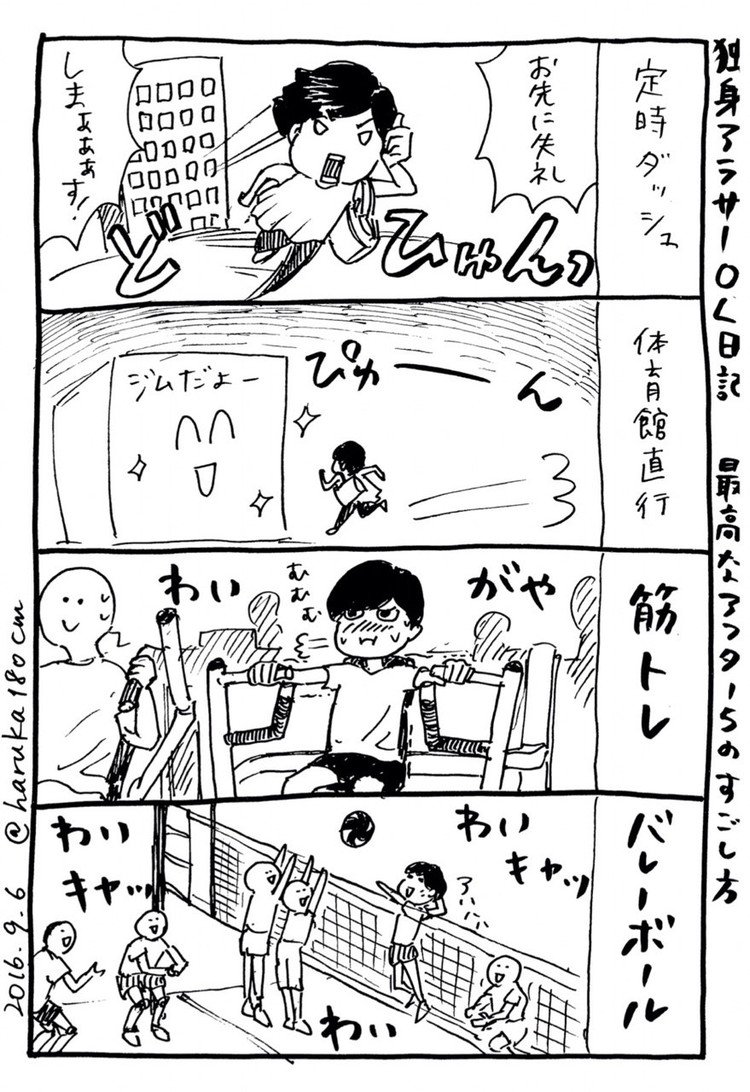 独身アラサーOL日記 最高なアフター5のすごし方
定時ダッシュ
お先に失礼
しまぁぁぁす!
ひゅんっ
ど
体育館直行
ぴゅーーん
ジムだよー
筋トレ
がや
わい
むむむ
バレーボール
わい
キャッ
わい
キャッ
わい
2016.9.6 @haruka180cm